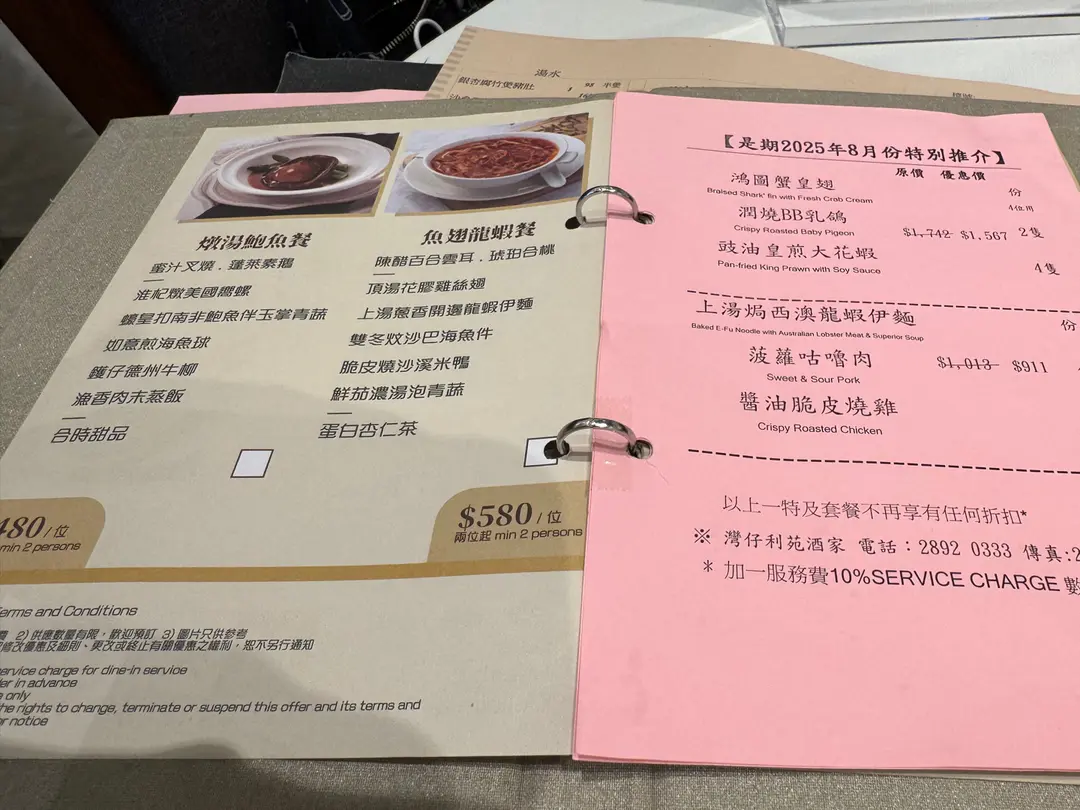 湯水
銀杏腐竹煲豬肚
98 半隻
燉湯鮑魚餐
蜜汁叉燒．蓬萊素鵝
淮杞燉美國響螺
蠔皇扣南非鮑魚伴玉掌青蔬
如意煎海魚球
鑊仔德州牛柳
漁香肉末蒸飯
合時甜品
480 / 位
min 2 persons
魚翅龍蝦餐
陳醋百合雲耳．琥珀合桃
頂湯花膠雞絲翅
上湯蔥香開邊龍蝦伊麵
雙冬炆沙巴海魚件
脆皮燒沙溪米鴨
鮮茄濃湯泡青蔬
蛋白杏仁茶
$580 / 位
兩位起 min 2 persons
Terms and Conditions
2) 供應數量有限，歡迎預訂 3) 圖片只供參考
修改優惠及細則、更改或終止有關優惠之權利，恕不另行通知
service charge for dine-in service
in advance
only
the rights to change, terminate or suspend this offer and its terms and
notice
【是期2025年8月份特別推介】
原價 優惠價
鴻圖蟹皇翅 份
Braised Shark' fin with Fresh Crab Cream 4位用
潤燒BB乳鴿
Crispy Roasted Baby Pigeon $1,742 $1,567 2隻
豉油皇煎大花蝦
Pan-fried King Prawn with Soy Sauce 4隻
上湯焗西澳龍蝦伊麵 份
Baked E-Fu Noodle with Australian Lobster Meat & Superior Soup
菠蘿咕嚕肉 $1,013 $911
Sweet & Sour Pork
醬油脆皮燒雞
Crispy Roasted Chicken
以上一特及套餐不再享有任何折扣*
※ 灣仔利苑酒家 電話：2892 0333 傳真:2
* 加一服務費10%SERVICE CHARGE